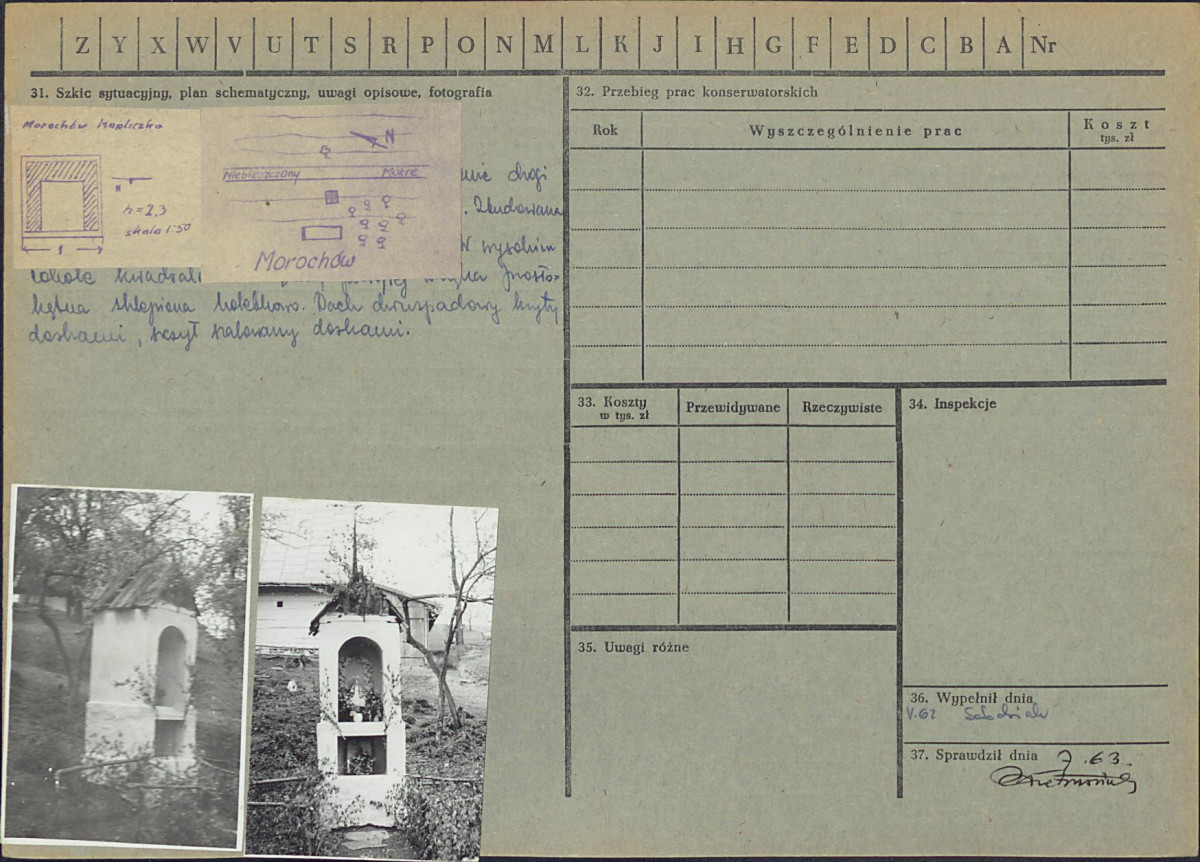 Z Y X W V U T S R P O N M L K J I H G F E D C B A Nr
31. Szkic sytuacyjny, plan schematyczny, uwagi opisowe, fotografia
Morochów kapliczka
N
h = 2,3
skala 1:50
1
N
Niebieszczany Mokre
Morochów
drogi
. Zbudowana
W wysokim
cokole kwadrat
kątna sklepiona kolebkowo. Dach dwuspadowy kryty
deskami, szczyt szalowany deskami.
32. Przebieg prac konserwatorskich
Rok Wyszczególnienie prac Koszt
tys. zł
33. Koszty
w tys. zł
Przewidywane Rzeczywiste
34. Inspekcje
35. Uwagi różne
36. Wypełnił dnia
V.62
37. Sprawdził dnia 7.63.